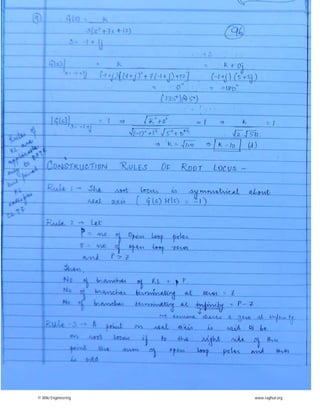 9) G(s) = K
s(s²+7s+12)
s = -1+1j
96
G(s)| s=-1+1j = K = K+0j
(-1+j)[(-1+j)²+7(-1+j)+12] (-1+j)(5+5j)
= 0° = -180°
(135°)(45°)
|G(s)| s=-1+1j = 1 ⇒ √K²+0² = 1 ⇒ K = 1
√(-1)²+1² √5²+5² √2 √50
⇒ K = √100 ⇒ K=10 (d)
Rules of
RL are
CONSTRUCTION RULES OF ROOT LOCUS -
Rule 1 → The root locus is symmetrical about
real axis [G(s)H(s) = -1]
Rule 2 → Let
P = no. of open loop poles
Z = no. of open loop zeros
and P > Z
Then,
No of branches of RL = P
No of branches terminating at zeros = Z
No of branches terminating at infinity = P-Z
assume zeros at infinity
Rule-3 → A point on real axis is said to be
on root locus if to the right side of this
point the sum of open loop poles and zeros
is odd
© Wiki Engineering
www.raghul.org